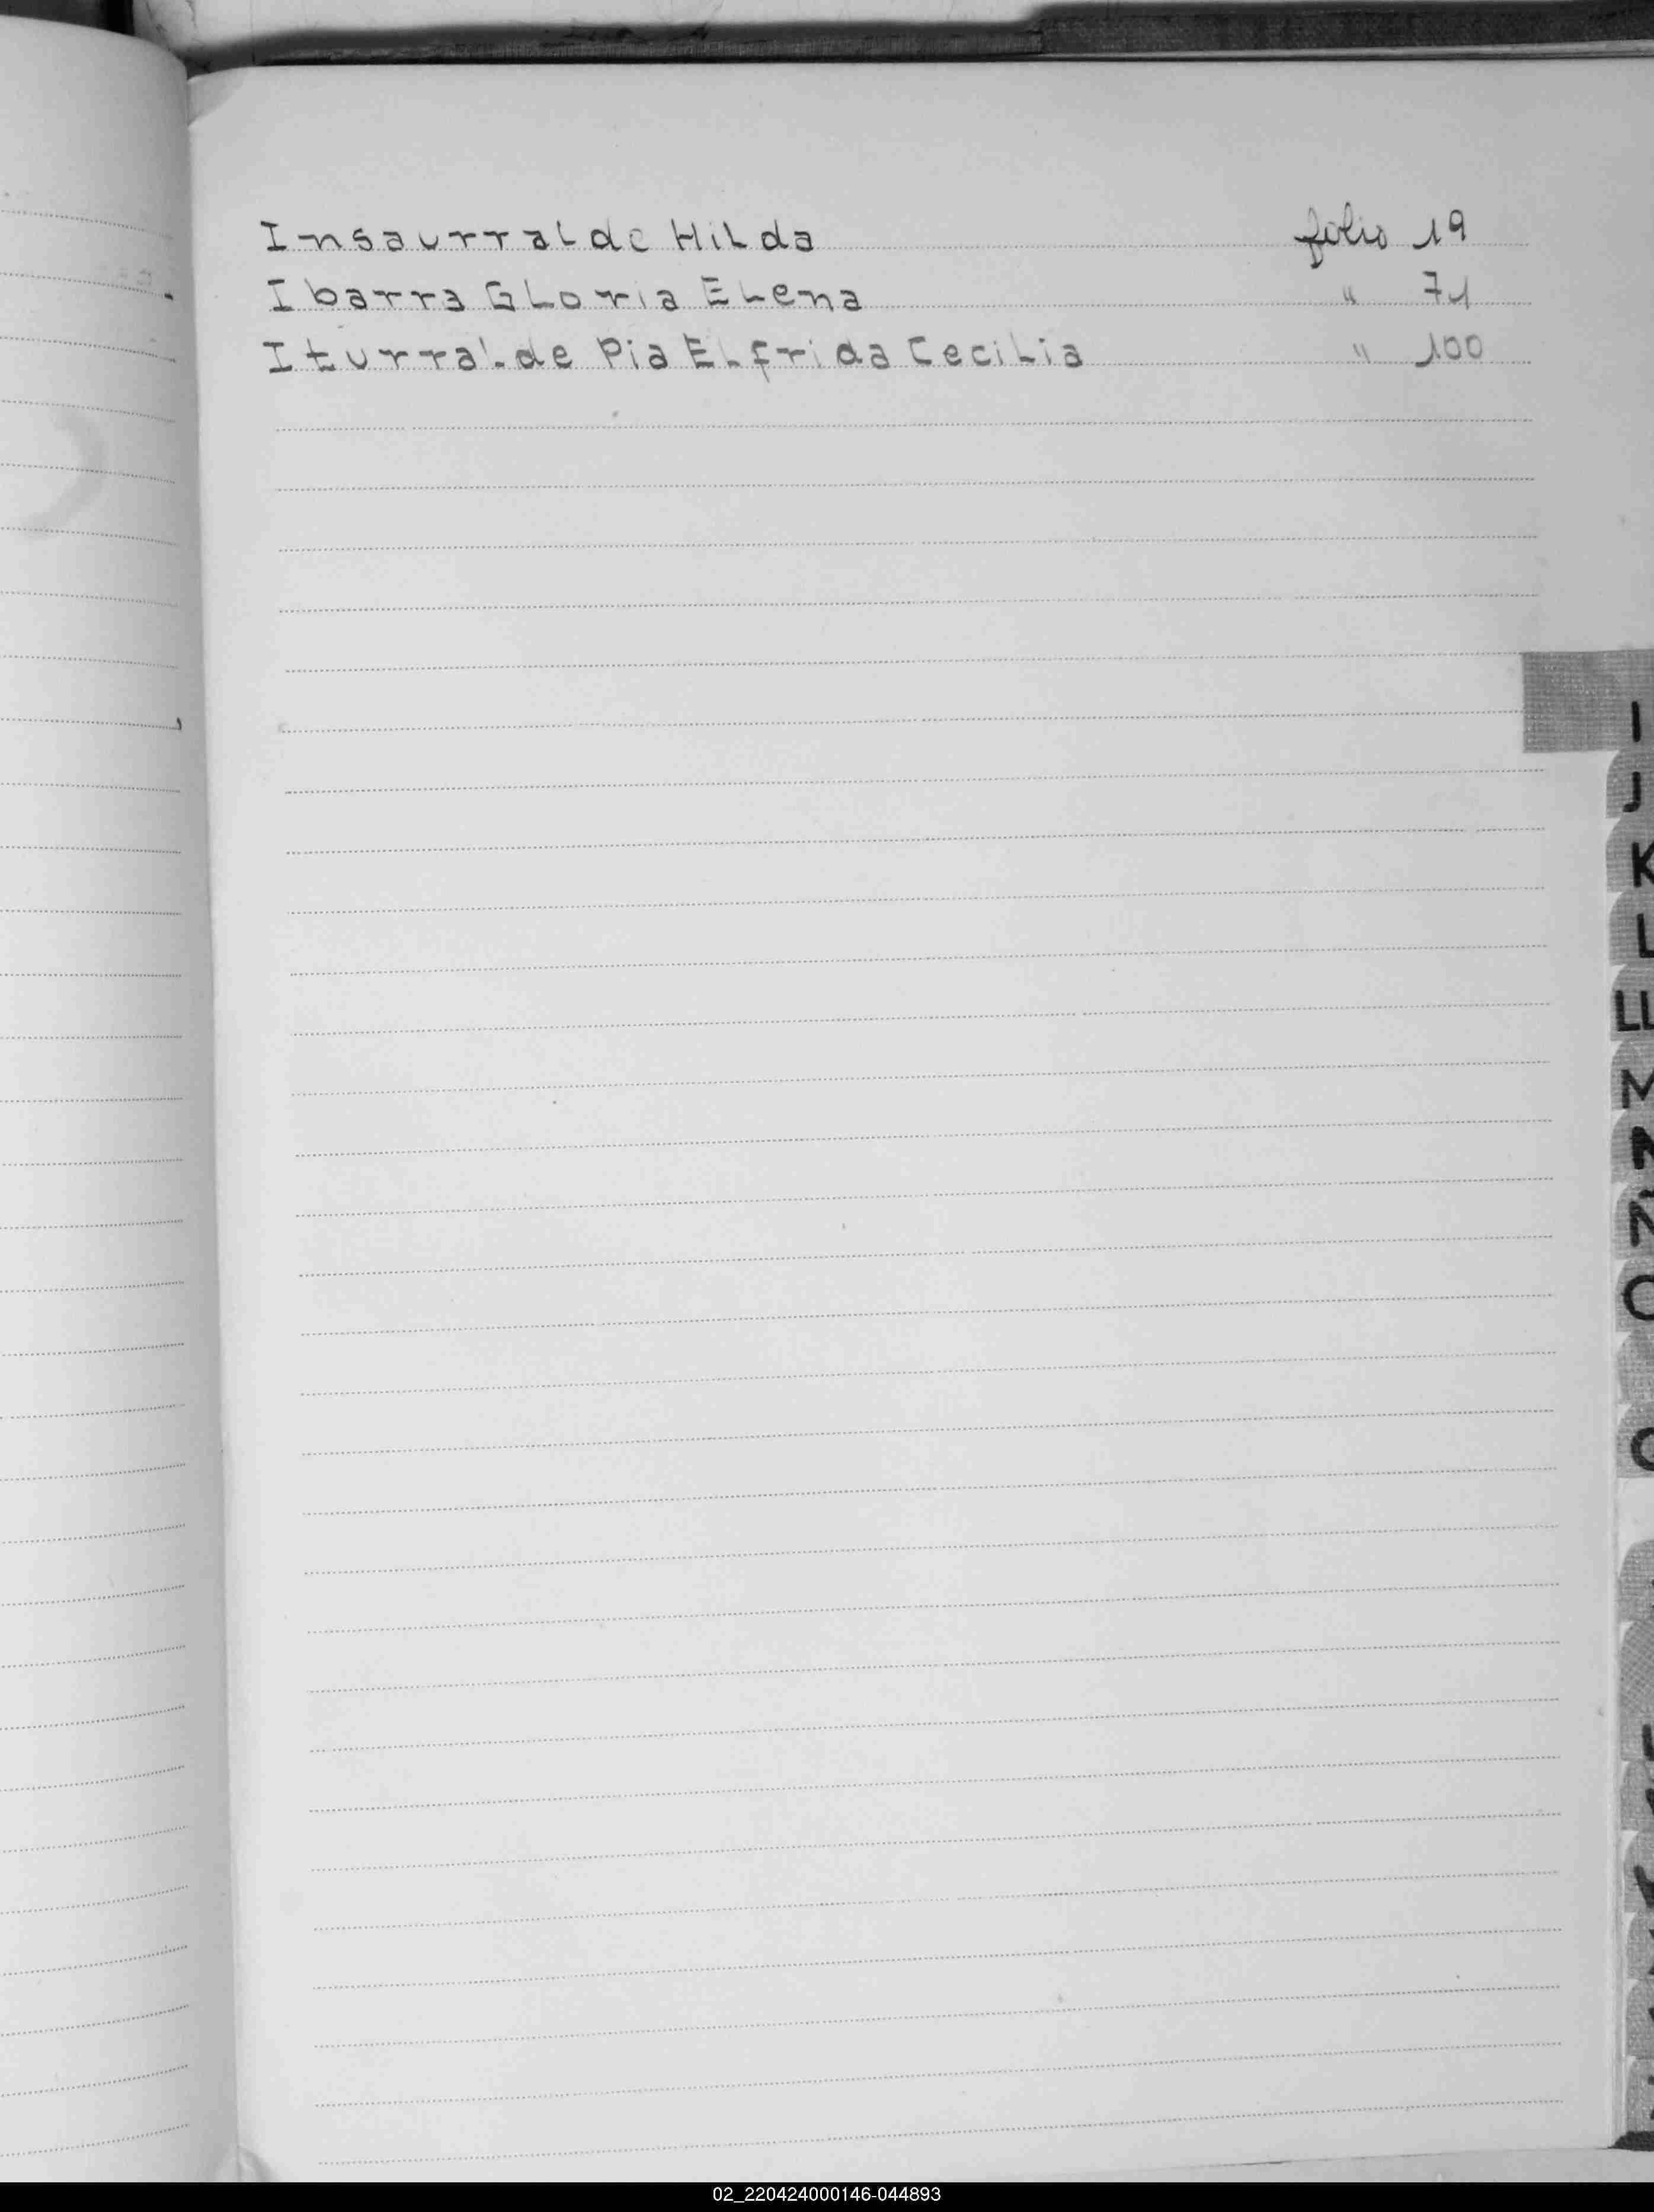 Insaurralde Hilda folio 19
Ibarra Gloria Elena " 71
Iturralde Pia Elfrida Cecilia " 100
I
J
K
L
LL
M
N
Ñ
O
02_220424000146-044893